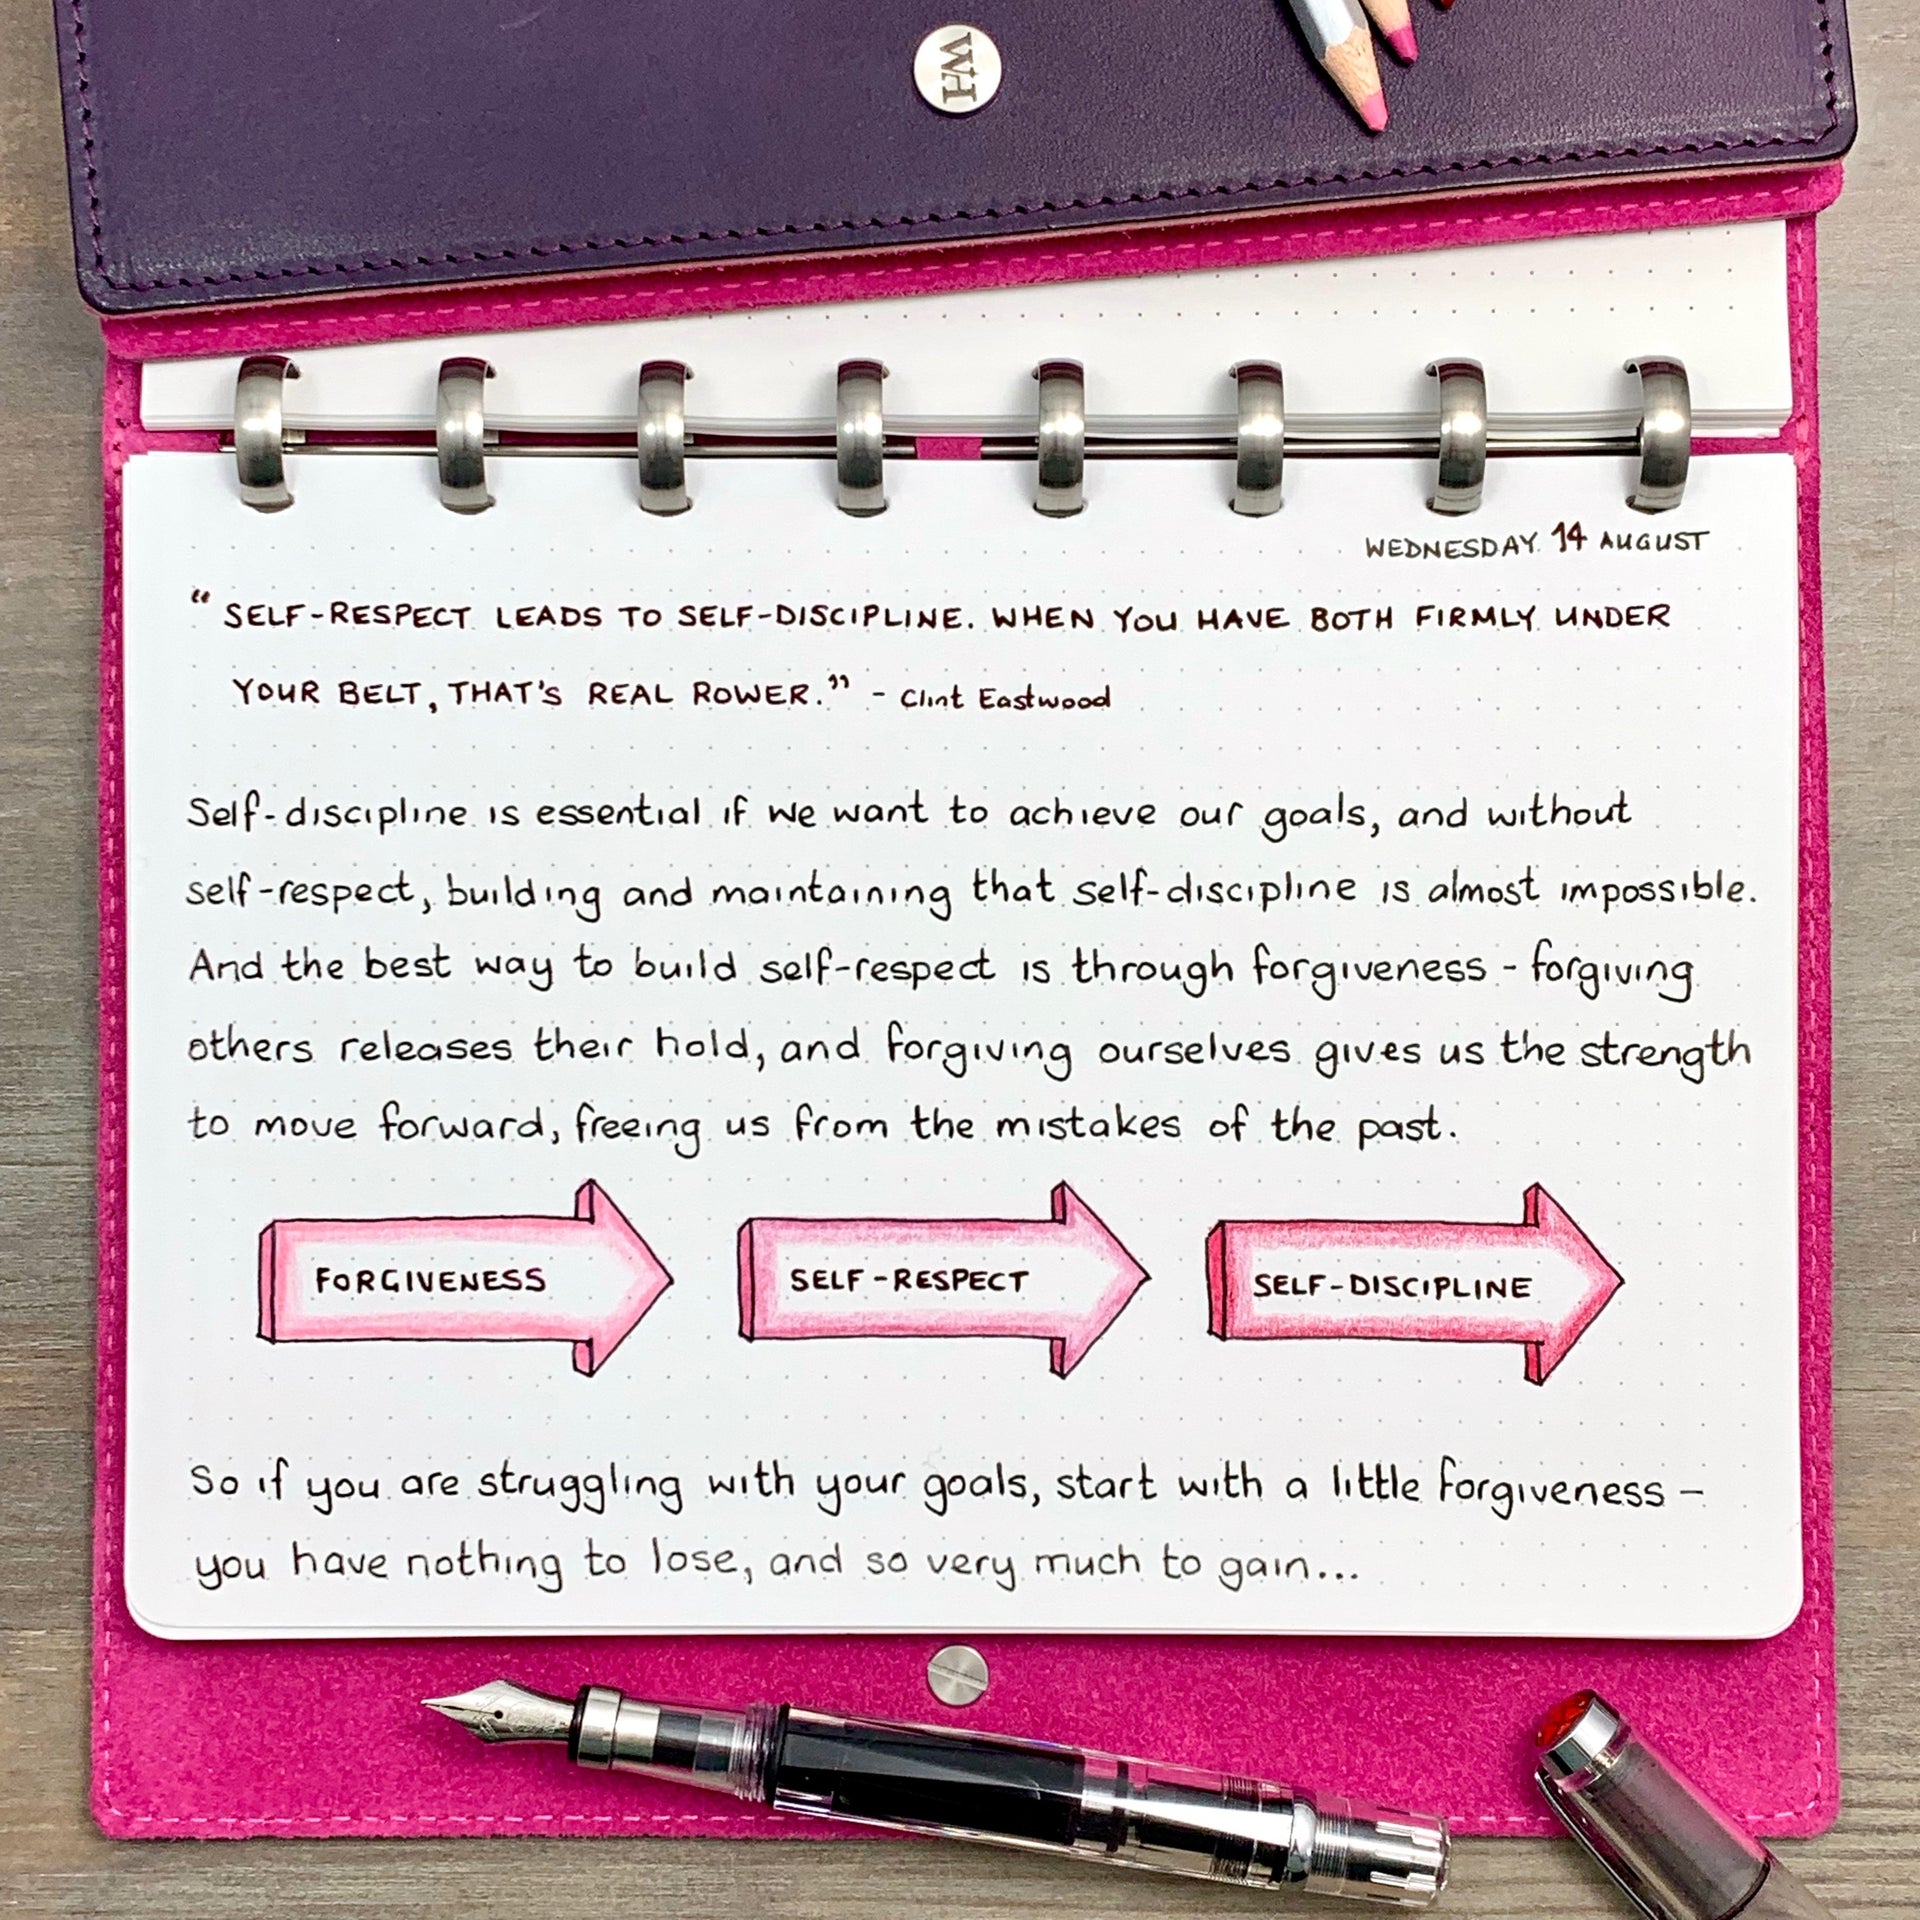 WH
WEDNESDAY 14 AUGUST
“ SELF-RESPECT LEADS TO SELF-DISCIPLINE. WHEN YOU HAVE BOTH FIRMLY UNDER
YOUR BELT, THAT'S REAL ROWER.” - Clint Eastwood
Self-discipline is essential if we want to achieve our goals, and without
self-respect, building and maintaining that self-discipline is almost impossible.
And the best way to build self-respect is through forgiveness - forgiving
others releases their hold, and forgiving ourselves gives us the strength
to move forward, freeing us from the mistakes of the past.
FORGIVENESS
SELF-RESPECT
SELF-DISCIPLINE
So if you are struggling with your goals, start with a little forgiveness -
you have nothing to lose, and so very much to gain...